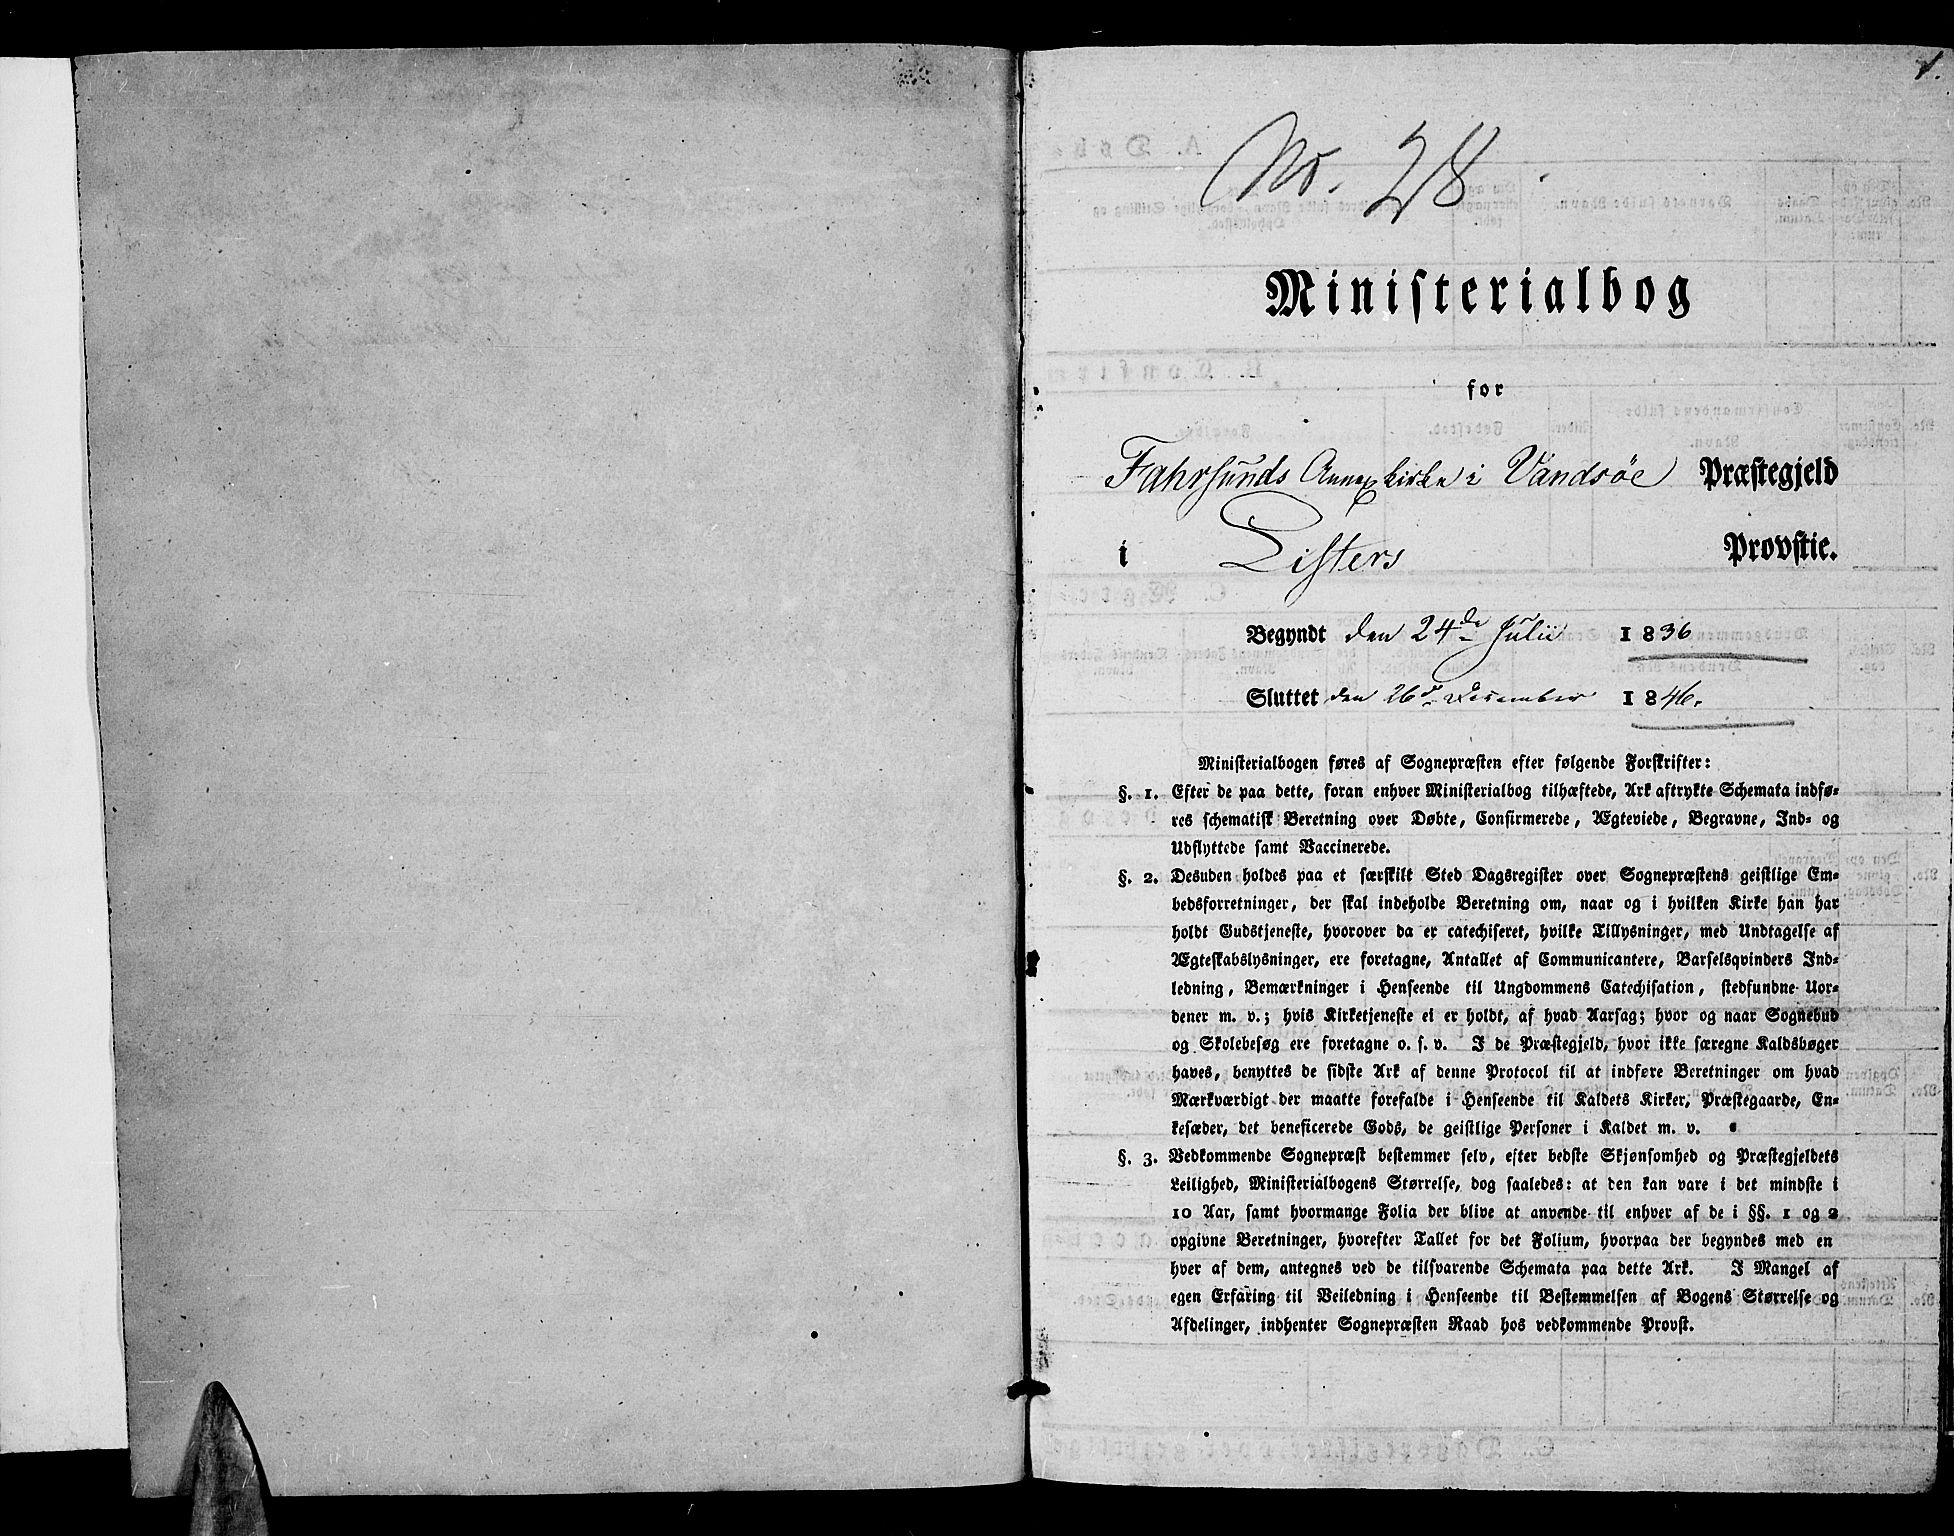 1.
No. 28
Ministerialbog
for
Fahrsunds Annexkirke i Vandsøe Præstegjeld
i Listers Provstie.
Begyndt den 24de Julii 1836
Sluttet den 26de December 1846.
Ministerialbogen føres af Sognepræsten efter følgende Forskrifter:
§. 1. Efter de paa dette, foran enhver Ministerialbog tilhæftede, Ark aftrykte Schemata indfø-
res schematisk Beretning over Døbte, Confirmerede, Ægteviede, Begravne, Ind- og
Udflyttede samt Vaccinerede.
§. 2. Desuden holdes paa et særskilt Sted Dagsregister over Sognepræstens geistlige Em-
bedsforretninger, der skal indeholde Beretning om, naar og i hvilken Kirke han har
holdt Gudstjeneste, hvorover da er catechiseret, hvilke Tillysninger, med Undtagelse af
Ægteskabslysninger, ere foretagne, Antallet af Communicantere, Barselqvinders Ind-
ledning, Bemærkninger i Henseende til Ungdommens Catechisation, stedfundne Uor-
dener m. v.; hvis Kirketjeneste ei er holdt, af hvad Aarsag; hvor og naar Sognebud
og Skolebesøg ere foretagne o. s. v. I de Præstegjeld, hvor ikke særegne Kaldsbøger
haves, benyttes de sidste Ark af denne Protocol til at indføre Beretninger om hvad
Mærkværdigt der maatte forefalde i Henseende til Kaldets Kirker, Præstegaarde, En-
kesæder, det beneficerede Gods, de geistlige Personer i Kaldet m. v.
§. 3. Vedkommende Sognepræst bestemmer selv, efter bedste Skjønsomhed og Præstegjeldets
Leilighed, Ministerialbogens Størrelse, dog saaledes: at den kan vare i det mindste i
10 Aar, samt hvormange Folia der blive at anvende til enhver af de i §§. 1 og 2
opgivne Beretninger, hvorefter Tallet for det Folium, hvorpaa der begyndes med en
hver af dem, antegnes ved de tilsvarende Schemata paa dette Ark. I Mangel af
egen Erfaring til Veiledning i Henseende til Bestemmelsen af Bogens Størrelse og
Afdelinger, indhenter Sognepræsten Raad hos vedkommende Provst.